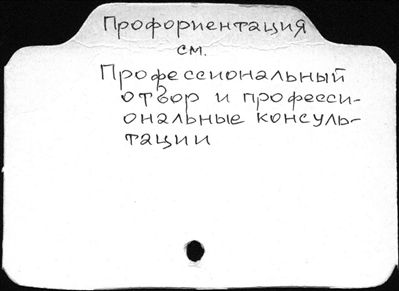 Профориентация
см.
Профессиональный
отбор и професси-
ональные консуль-
тации